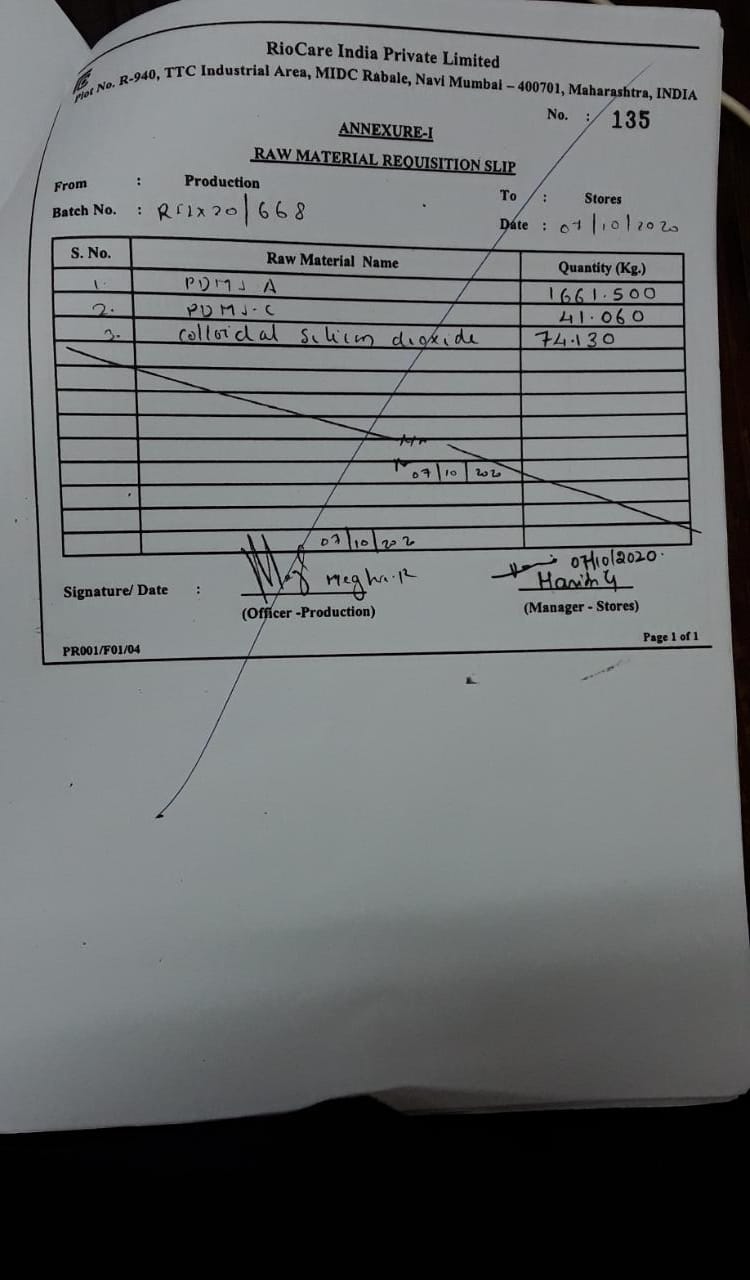 RioCare India Private Limited
Plot No. R-940, TTC Industrial Area, MIDC Rabale, Navi Mumbai – 400701, Maharashtra, INDIA
No. : 135
ANNEXURE-I
RAW MATERIAL REQUISITION SLIP
From : Production To : Stores
Batch No. : 20/668 Date : 07/10/2020
S. No. Raw Material Name Quantity (Kg.)
1. PDMS A 1661.500
2. PDMS-C 41.060
3. Colloidal Silicon dioxide 74.130
07/10/202
07/10/202 07/10/2020.
Signature/ Date : Megha.R Harish G
(Officer -Production) (Manager - Stores)
PR001/F01/04 Page 1 of 1